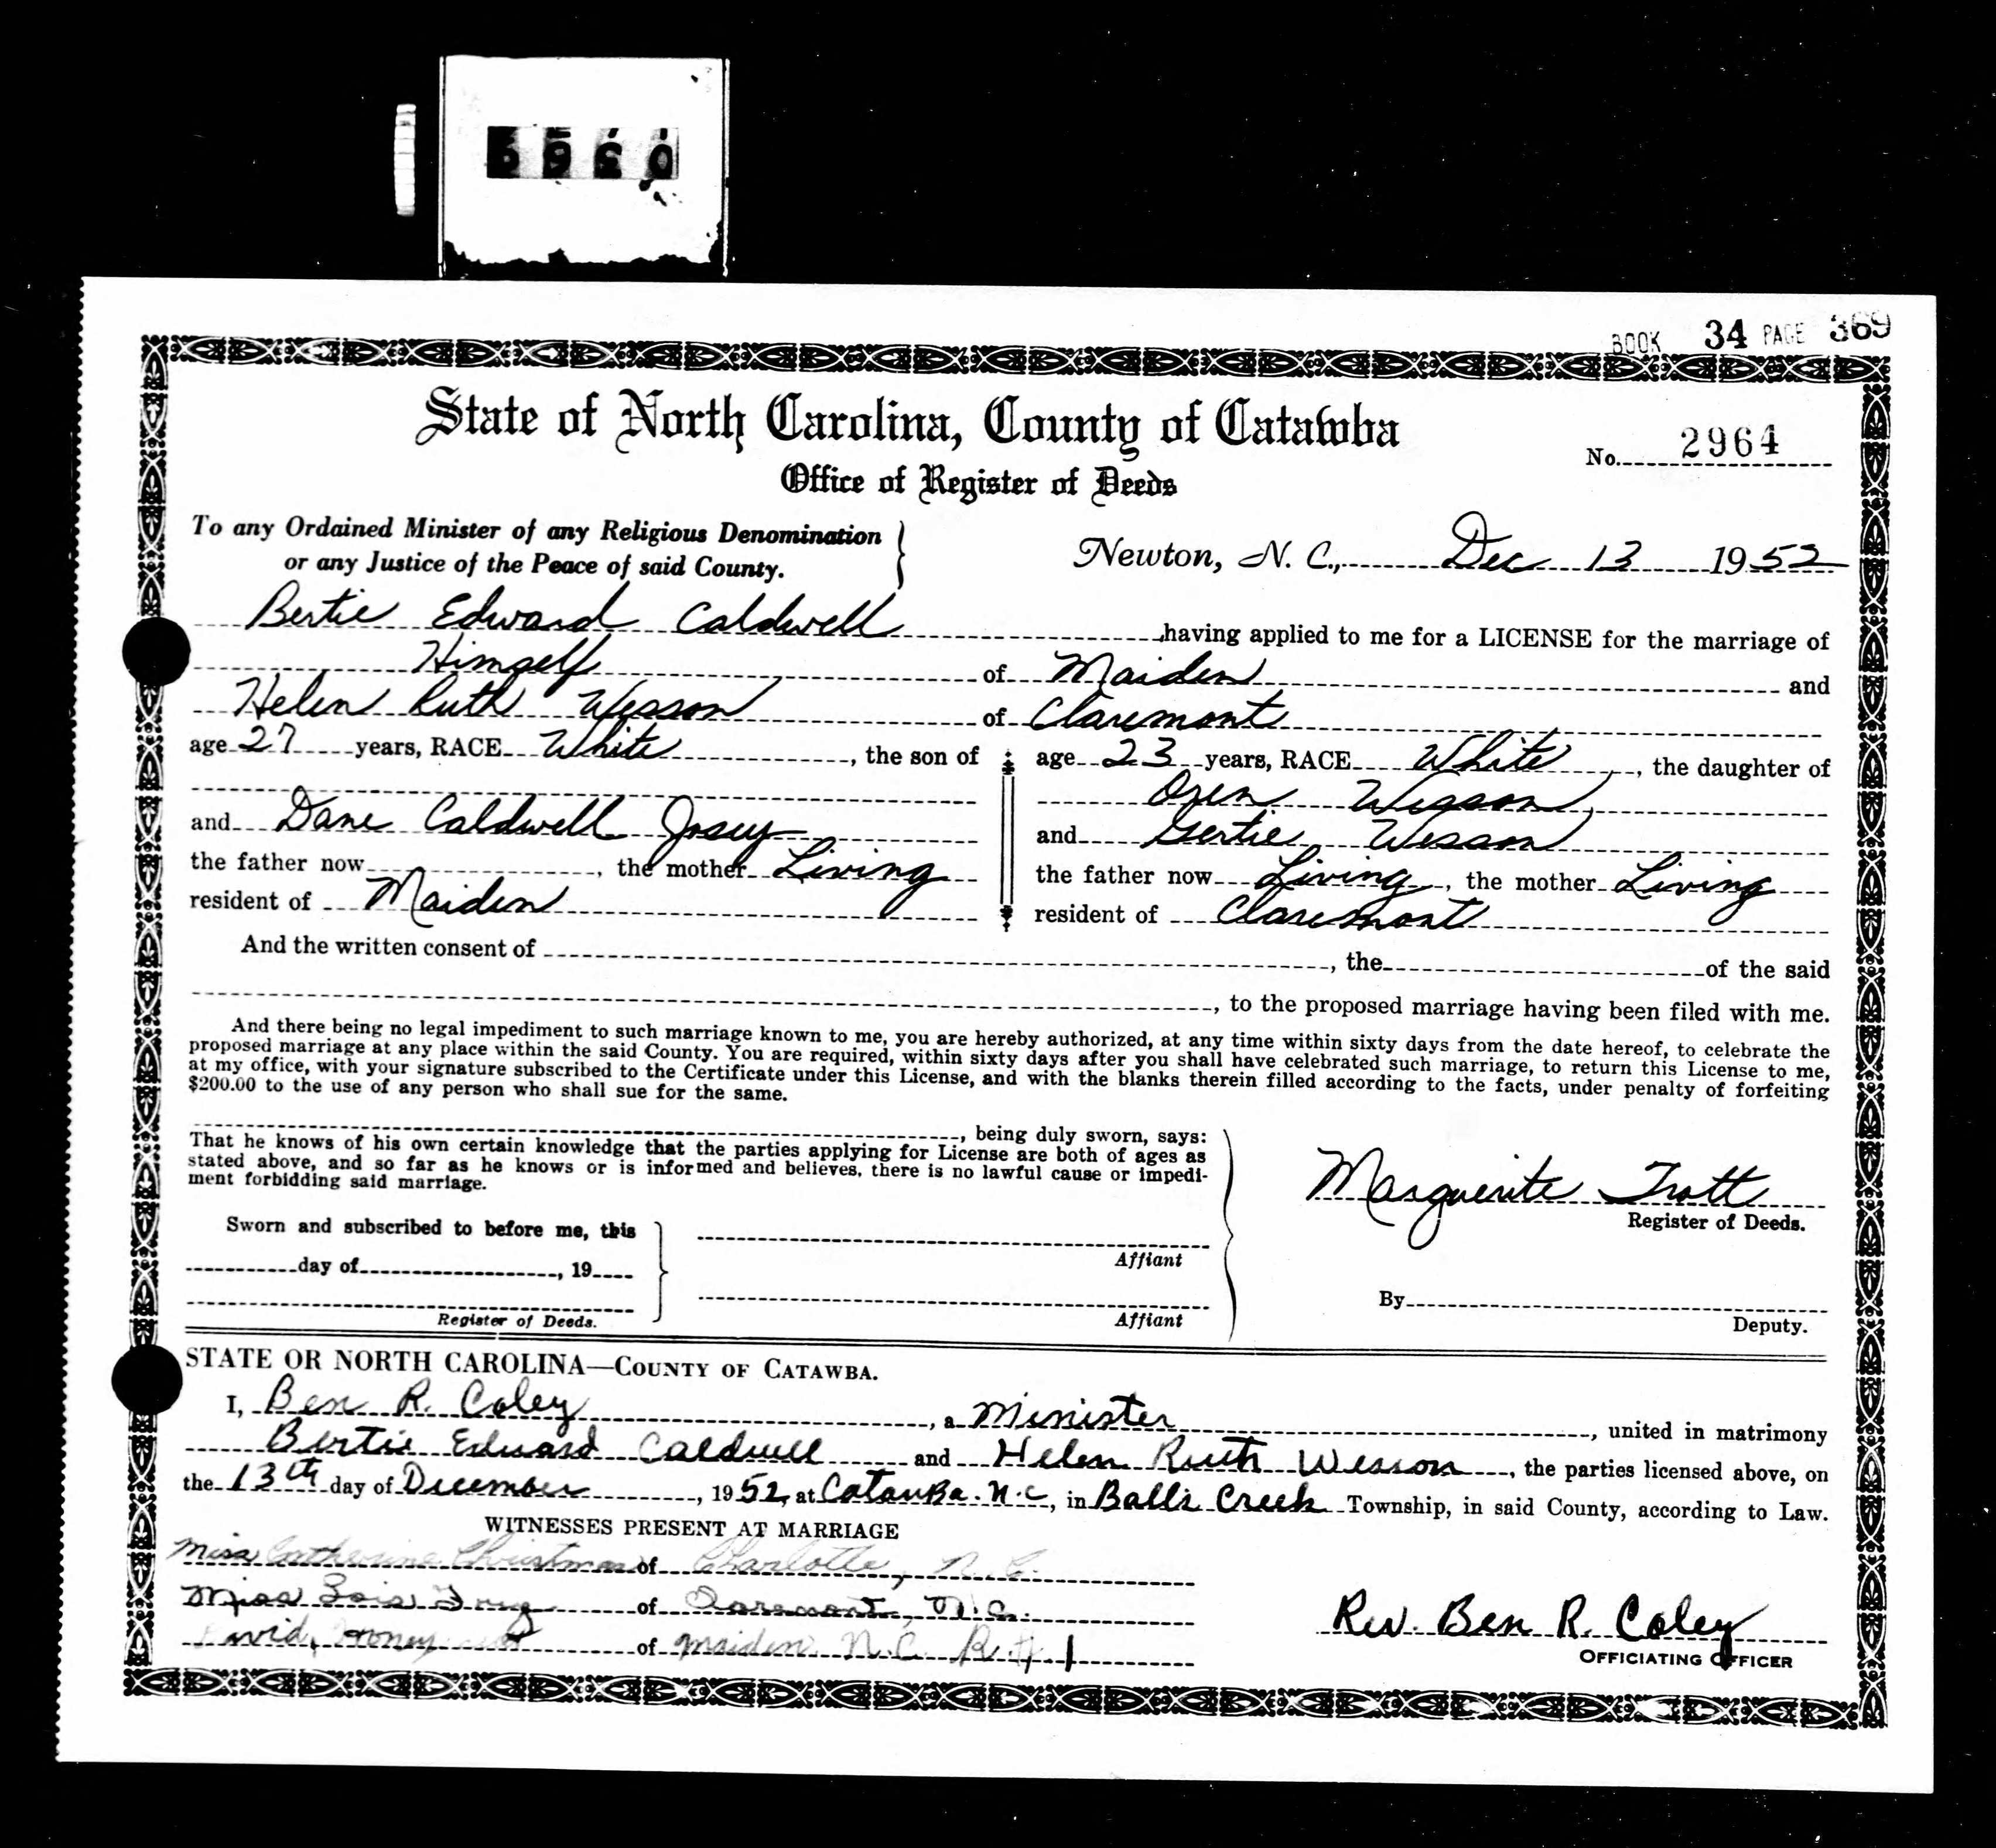 0369
BOOK 34 PAGE 369
State of North Carolina, County of Catawba
No. 2964
Office of Register of Deeds
To any Ordained Minister of any Religious Denomination
or any Justice of the Peace of said County.
Newton, N. C., Dec 13 1952
Bertie Edward Caldwell having applied to me for a LICENSE for the marriage of
Himself of Maiden and
Helen Ruth Wesson of Claremont
age 27 years, RACE White, the son of
and Dane Caldwell Josey
the father now , the mother Living
resident of Maiden
age 23 years, RACE White, the daughter of
Oren Wesson,
and Gertie Wesson
the father now Living, the mother Living
resident of Claremont
And the written consent of , the of the said
, to the proposed marriage having been filed with me.
And there being no legal impediment to such marriage known to me, you are hereby authorized, at any time within sixty days from the date hereof, to celebrate the
proposed marriage at any place within the said County. You are required, within sixty days after you shall have celebrated such marriage, to return this License to me,
at my office, with your signature subscribed to the Certificate under this License, and with the blanks therein filled according to the facts, under penalty of forfeiting
$200.00 to the use of any person who shall sue for the same.
, being duly sworn, says:
That he knows of his own certain knowledge that the parties applying for License are both of ages as
stated above, and so far as he knows or is informed and believes, there is no lawful cause or impedi-
ment forbidding said marriage.
Marguerite Trott
Register of Deeds.
Sworn and subscribed to before me, this
day of , 19
Register of Deeds.
Affiant
Affiant
By
Deputy.
STATE OR NORTH CAROLINA—COUNTY OF CATAWBA.
I, Ben R. Coley, a Minister, united in matrimony
Bertie Edward Caldwell and Helen Ruth Wesson, the parties licensed above, on
the 13th day of December, 1952, at Catawba. N.C, in Balls Creek Township, in said County, according to Law.
WITNESSES PRESENT AT MARRIAGE
Miss Catherine Christmas of Charlotte, N.C.
Miss Lois of Claremont, N.C.
David of Maiden N.C. R.#1
Rev. Ben R. Coley
OFFICIATING OFFICER